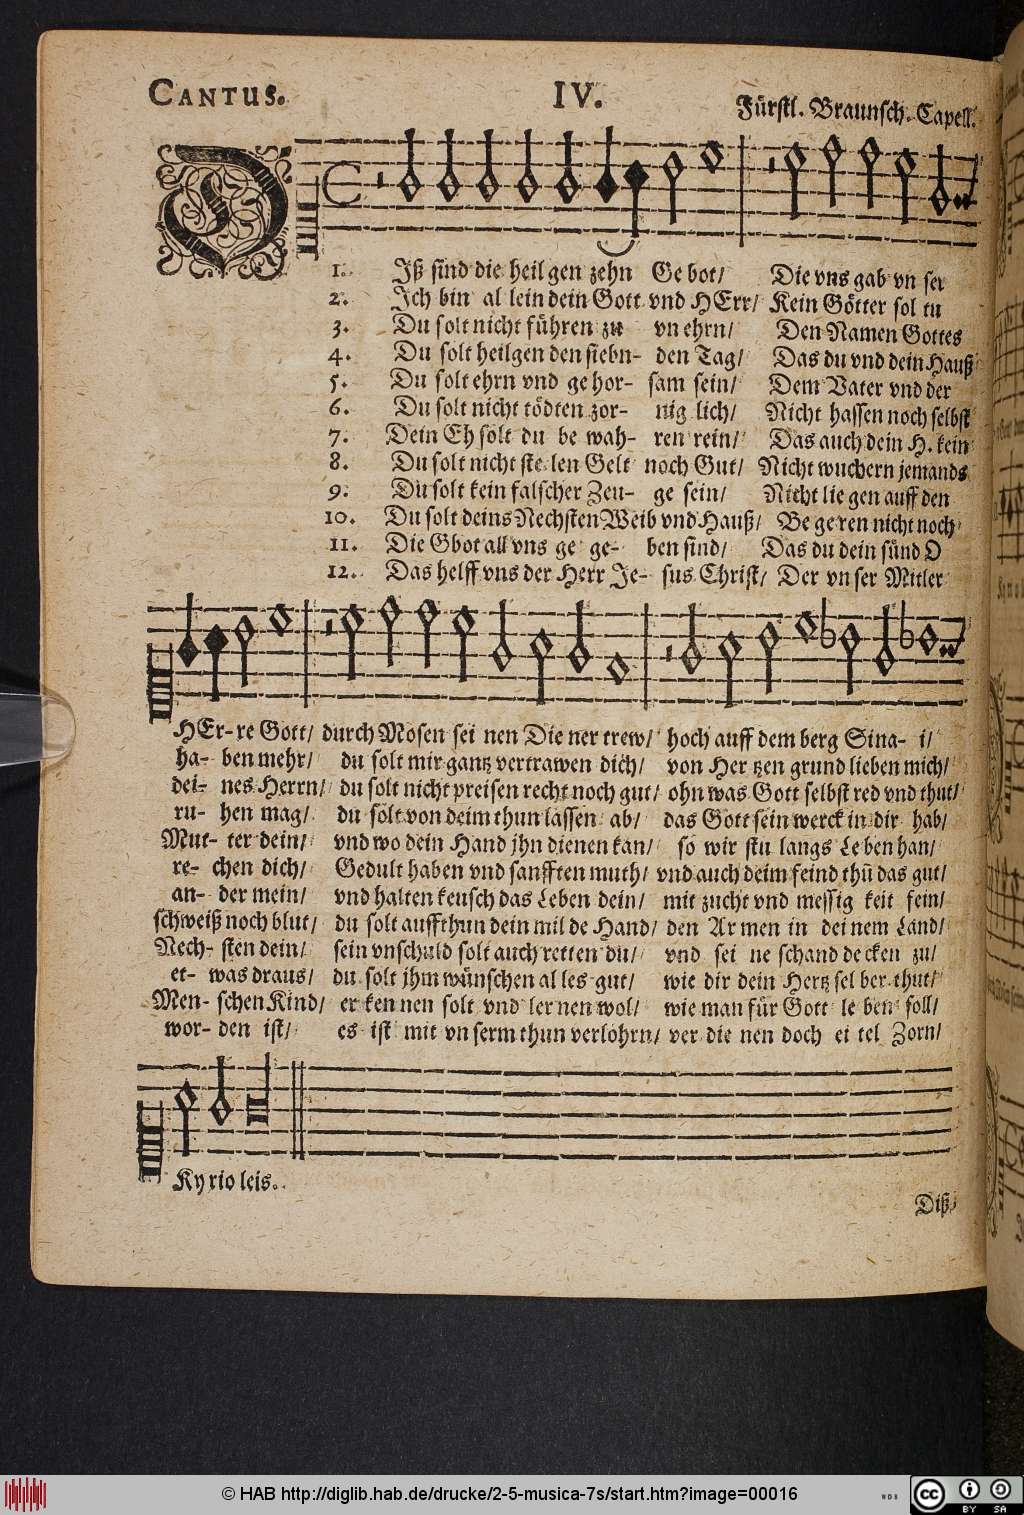 CANTUS. IV. Fürstl. Braunsch. Capell.
D
1. Iß sind die heil gen zehn Ge bot/ Die vns gab vn ser
2. Ich bin al lein dein Gott vnd HErr/ Kein Götter sol tu
3. Du solt nicht führen zu vn ehrn/ Den Namen Gottes
4. Du solt heilgen den siebn- den Tag/ Das du vnd dein Hauß
5. Du solt ehrn vnd ge hor- sam sein/ Dem Vater vnd der
6. Du solt nicht tödten zor- nig lich/ Nicht hassen noch selbst
7. Dein Eh solt du be wah- ren rein/ Das auch dein H. kein
8. Du solt nicht ste len Gelt noch Gut/ Nicht wuchern jemands
9. Du solt kein falscher Zeu- ge sein/ Nicht lie gen auff den
10. Du solt deins Nechsten Weib vnd Hauß/ Be ge ren nicht noch
11. Die Gbot all vns ge ge- ben sind/ Das du dein sünd O
12. Das helff vns der Herr Je- sus Christ/ Der vn ser Mitler
HEr- re Gott/ durch Mosen sei nen Die ner trew/ hoch auff dem berg Sina- i/
ha- ben mehr/ du solt mir gantz vertrawen dich/ von Her tzen grund lieben mich/
dei- nes Herrn/ du solt nicht preisen recht noch gut/ ohn was Gott selbst red vnd thut/
ru- hen mag/ du solt von deim thun lassen ab/ das Gott sein werck in dir hab/
Mut- ter dein/ vnd wo dein Hand jhn dienen kan/ so wir stu langs Le ben han/
re- chen dich/ Gedult haben vnd sanfften muth/ vnd auch deim feind thu das gut/
an- der mein/ vnd halten keusch das Leben dein/ mit zucht vnd messig keit fein/
schweiß noch blut/ du solt auffthun dein mil de Hand/ den Ar men in dei nem Land/
Nech- sten dein/ sein vnschuld solt auch retten du/ vnd sei ne schand de cken zu/
et- was draus/ du solt jhm wünschen al les gut/ wie dir dein Hertz sel ber thut/
Men- schen Kind/ er ken nen solt vnd ler nen wol/ wie man für Gott le ben soll/
wor- den ist/ es ist mit vn serm thun verlohrn/ ver die nen doch ei tel Zorn/
Ky rio leis.
Diß
© HAB http://diglib.hab.de/drucke/2-5-musica-7s/start.htm?image=00016
WDB
cc BY SA